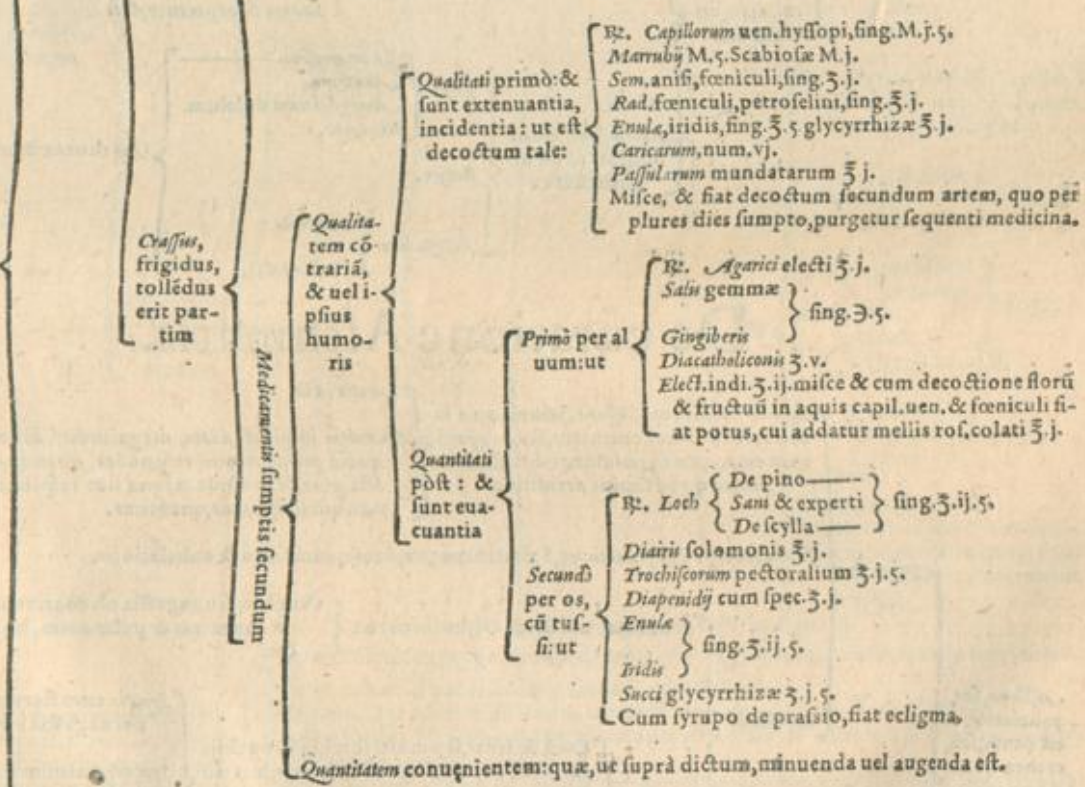 Crassus,
frigidus,
tollēdus
erit par-
tim
Medicamentis sumptis secundum
Qualita-
tem cō
trariā,
& uel i-
psius
humo-
ris
Qualitati primò: &
sunt extenuantia,
incidentia: ut est
decoctum tale:
℞. Capillorum uen. hyssopi, sing. M. j. 5.
Marrubij M. 5. Scabiosæ M. j.
Sem. anisi, fœniculi, sing. ʒ. j.
Rad. fœniculi, petroselini, sing. ℥. j.
Enulæ, iridis, sing. ℥. 5 glycyrrhizæ ℥ j.
Caricarum, num. vj.
Passularum mundatarum ℥ j.
Misce, & fiat decoctum secundum artem, quo per
plures dies sumpto, purgetur sequenti medicina.
Quantitati
pòst: &
sunt eua-
cuantia
Primò per al
uum: ut
℞. Agarici electi ʒ. j.
Salis gemmæ
Gingiberis
sing. ℈. 5.
Diacatholiconis ʒ. v.
Elect. indi. ʒ. ij. misce & cum decoctione florū
& fructuū in aquis capil. uen. & fœniculi fi-
at potus, cui addatur mellis ros. colati ℥ j.
Secundò
per os,
cū tus-
si: ut
℞. Loch
De pino
Sani & experti
De scylla
sing. ʒ. ij. 5.
Diairis solomonis ℥. j.
Trochiscorum pectoralium ℥. j. 5.
Diapenidij cum spec. ʒ. j.
Enulæ
Iridis
sing. ʒ. ij. 5.
Succi glycyrrhizæ ʒ. j. 5.
Cum syrupo de prassio, fiat ecligma.
Quantitatem conuenientem: quæ, ut suprà dictum, minuenda uel augenda est.